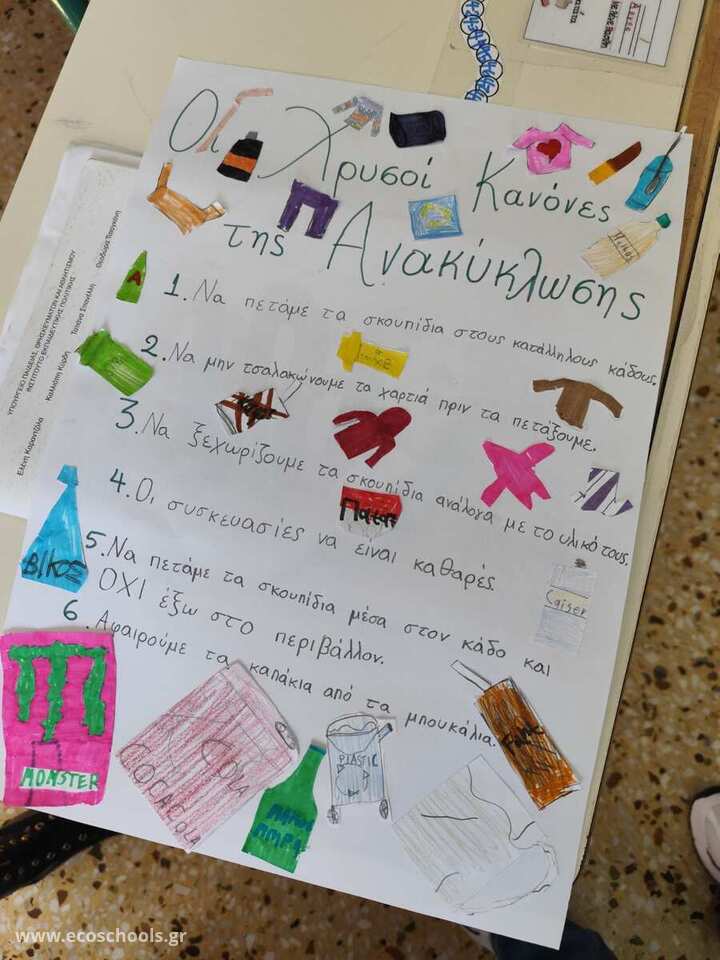 Οι Χρυσοί Κανόνες
της Ανακύκλωσης
1. Να πετάμε τα σκουπίδια στους κατάλληλους κάδους.
2. Να μην τσαλακώνουμε τα χαρτιά πριν τα πετάξουμε.
3. Να ξεχωρίζουμε τα σκουπίδια ανάλογα με το υλικό τους.
4. Οι συσκευασίες να ειναι καθαρές.
5. Να πετάμε τα σκουπίδια μέσα στον κάδο και
ΟΧΙ έξω στο περιβάλλον.
6. Αφαιρούμε τα καπάκια από τα μπουκάλια.
A
ΒΙΚΟΣ
Caiser
MOMSTER
COLA
COCACOLA
PLASTIC
ΥΠΟΥΡΓΕΙΟ ΠΑΙΔΕΙΑΣ, ΘΡΗΣΚΕΥΜΑΤΩΝ ΚΑΙ ΑΘΛΗΤΙΣΜΟΥ
ΙΝΣΤΙΤΟΥΤΟ ΕΚΠΑΙΔΕΥΤΙΚΗΣ ΠΟΛΙΤΙΚΗΣ
www.ecoschools.gr